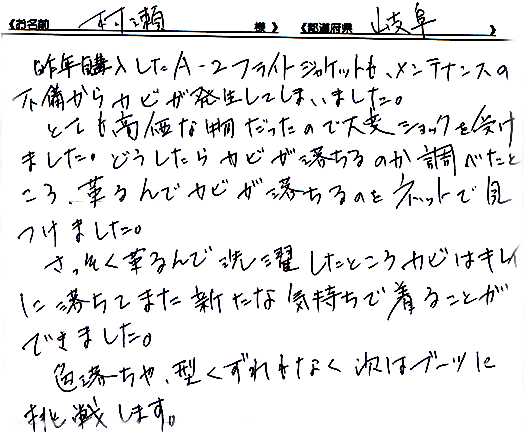 《お名前 村瀬 様》 《都道府県 岐阜 》
昨年購入したA-2フライトジャケットも、メンテナンスの
不備からカビが発生してしまいました。
とても高価な物だったので大変ショックを受け
ました。どうしたらカビが落ちるのか調べたと
ころ、革るんでカビが落ちるのをネットで見
つけました。
さっそく革るんで洗濯したところカビはキレイ
に落ちてまた新たな気持ちで着ることが
できました。
色落ちや、型くずれもなく次はブーツに
挑戦します。